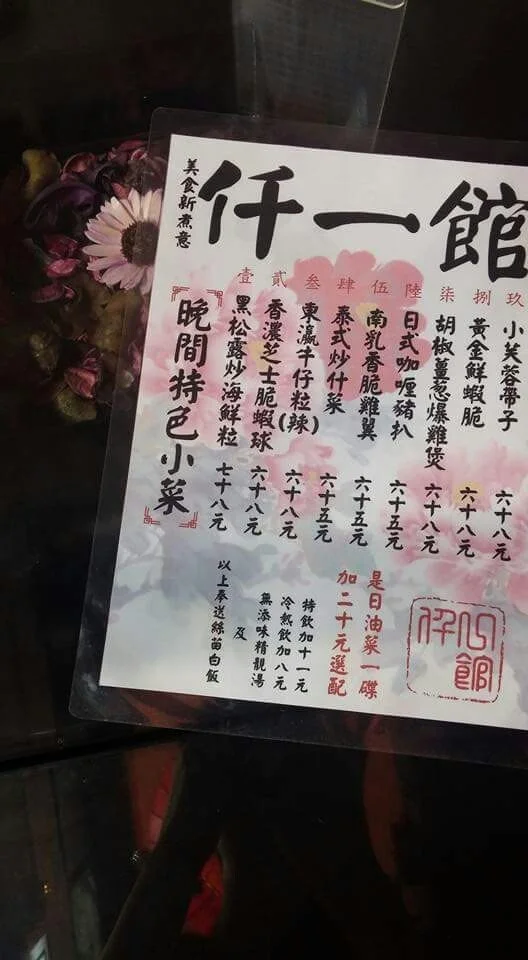 美食新煮意
仟一館
晚間特色小菜
壹 黑松露炒海鮮粒 七十八元
貳 香濃芝士脆蝦球 六十八元
叁 東瀛牛仔粒(辣) 六十八元
肆 泰式炒什菜 六十五元
伍 南乳香脆雞翼 六十五元
陸 日式咖喱豬扒 六十五元
柒 胡椒薑蔥爆雞煲 六十八元
捌 黃金鮮蝦脆 六十八元
玖 小芙蓉帶子 六十八元
以上奉送絲苗白飯
及
無添味精靚湯
冷熱飲加八元
特飲加十一元
是日油菜一碟
加二十元選配